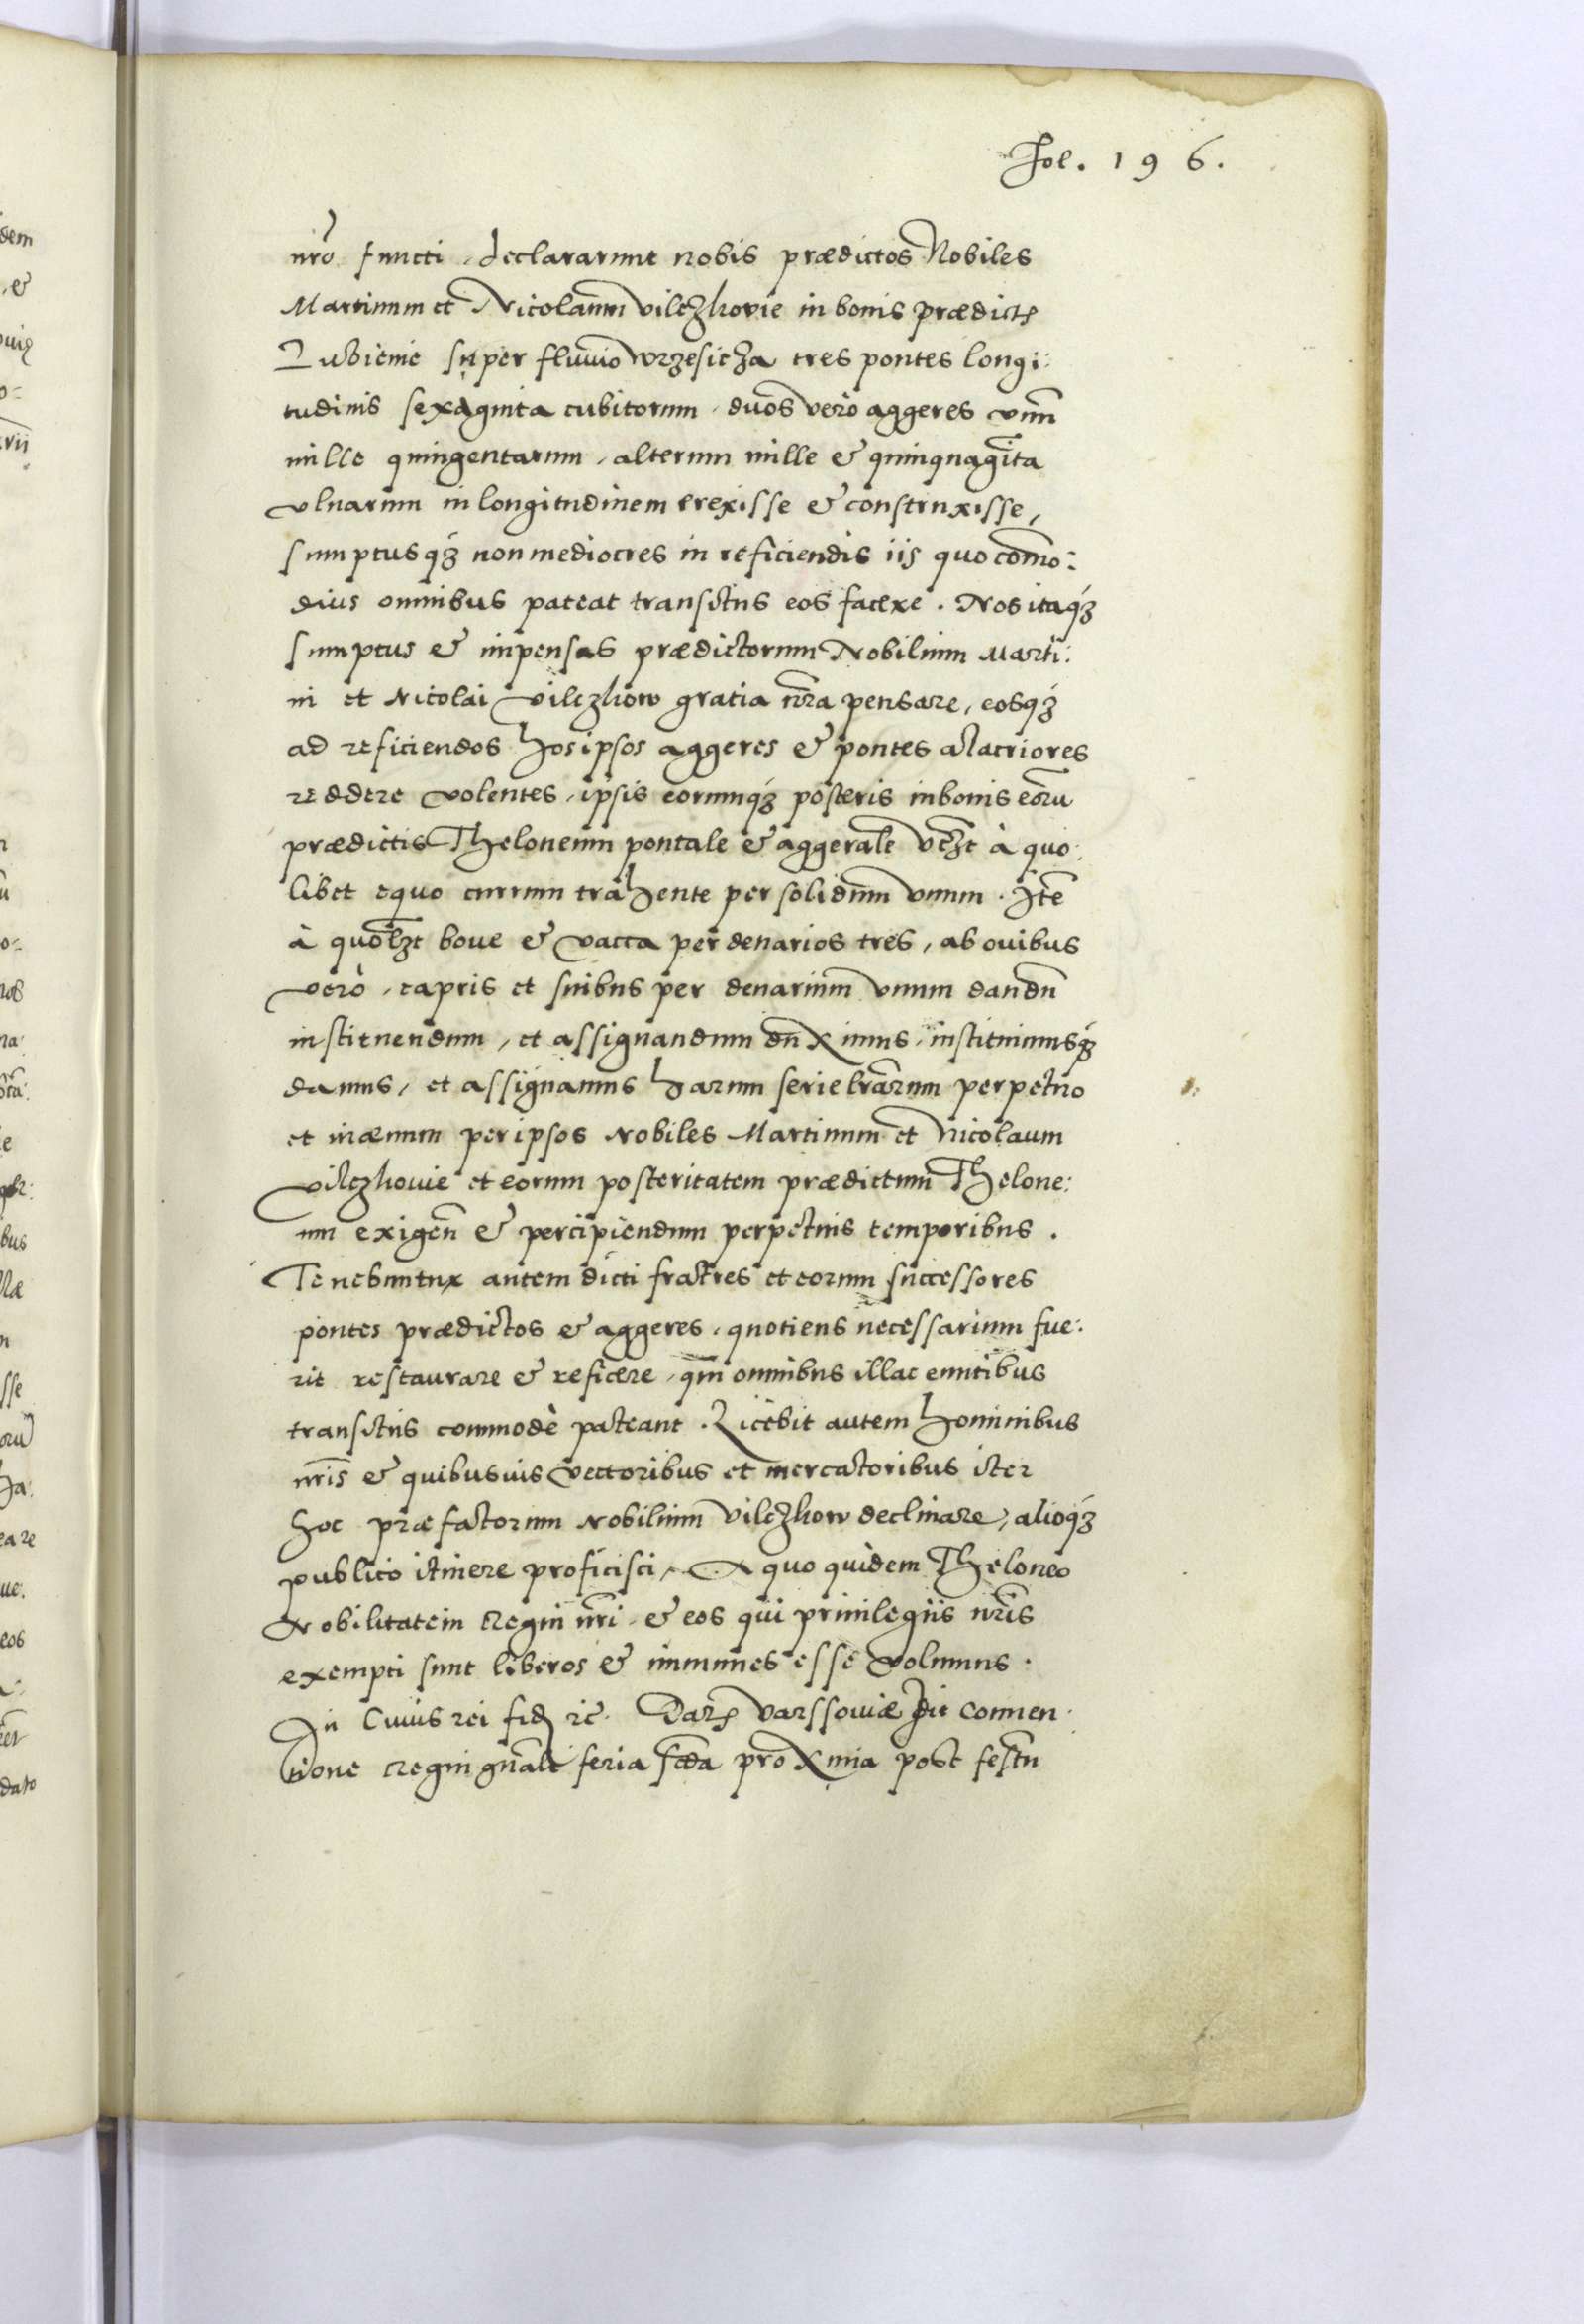 Fol. 196.
nrō functi, declararunt nobis prædictos Nobiles
Martinum et Nicolaum Vilczkovie in bonis prædictis
Lubienie super fluvio Wrzesicza tres pontes longi:
tudinis sexaginta cubitorum, duos verò aggeres unũ
mille quingentarum, alterum mille & quinquagīta
ulnarum in longitudinem erexisse & construxisse,
sumptusqȝ non mediocres in reficiendis iis quo com̄o:
dius omnibus pateat transitus eos facere. Nos itaqȝ
sumptus & impensas prædictorum Nobilium Marti:
ni et Nicolai Vilczkow gratia nrã pensare, eosqȝ
ad reficiendos hos ipsos aggeres & pontes alacriores
reddere volentes, ipsis eorumqȝ posteris in bonis eorũ
prædictis Theloneum pontale & aggerale vcȝt à quo:
libet equo currum trahente per solidum unum. Itẽ
à quolȝt boue & vacca per denarios tres, ab ouibus
verò, capris et suibus per denarium unum dandũ
instituendum, et assignandum duximus, instituimusqȝ
damus, et assignamus harum serie lrãrum perpetuo
et in æuum per ipsos Nobiles Martinum et Nicolaum
Vilczkovie et eorum posteritatem prædictum Thelone:
um exigeñ & percipiendum perpetuis temporibus.
Tenebuntur autem dicti fratres et eorum successores
pontes prædictos & aggeres, quotiens necessarium fue:
rit restaurare & reficere, qm̃ omnibus illac euntibus
transitus commodè pateant. Licebit autem hominibus
nr̃is & quibusuis Vectoribus et mercatoribus iter
hoc præfatorum Nobilium Vilczkow declinare, alioqȝ
publico itinere proficisci, A quo quidem Theloneo
Nobilitatem Regni nr̃i & eos qui priuilegiis nr̃is
exempti sunt liberos & immunes esse volumus.
In Cuius rei fidẽ ꝛc. Datꝭ Varssouiæ in Conuen:
tione Regni gnãli feria scđa proxima post festũ